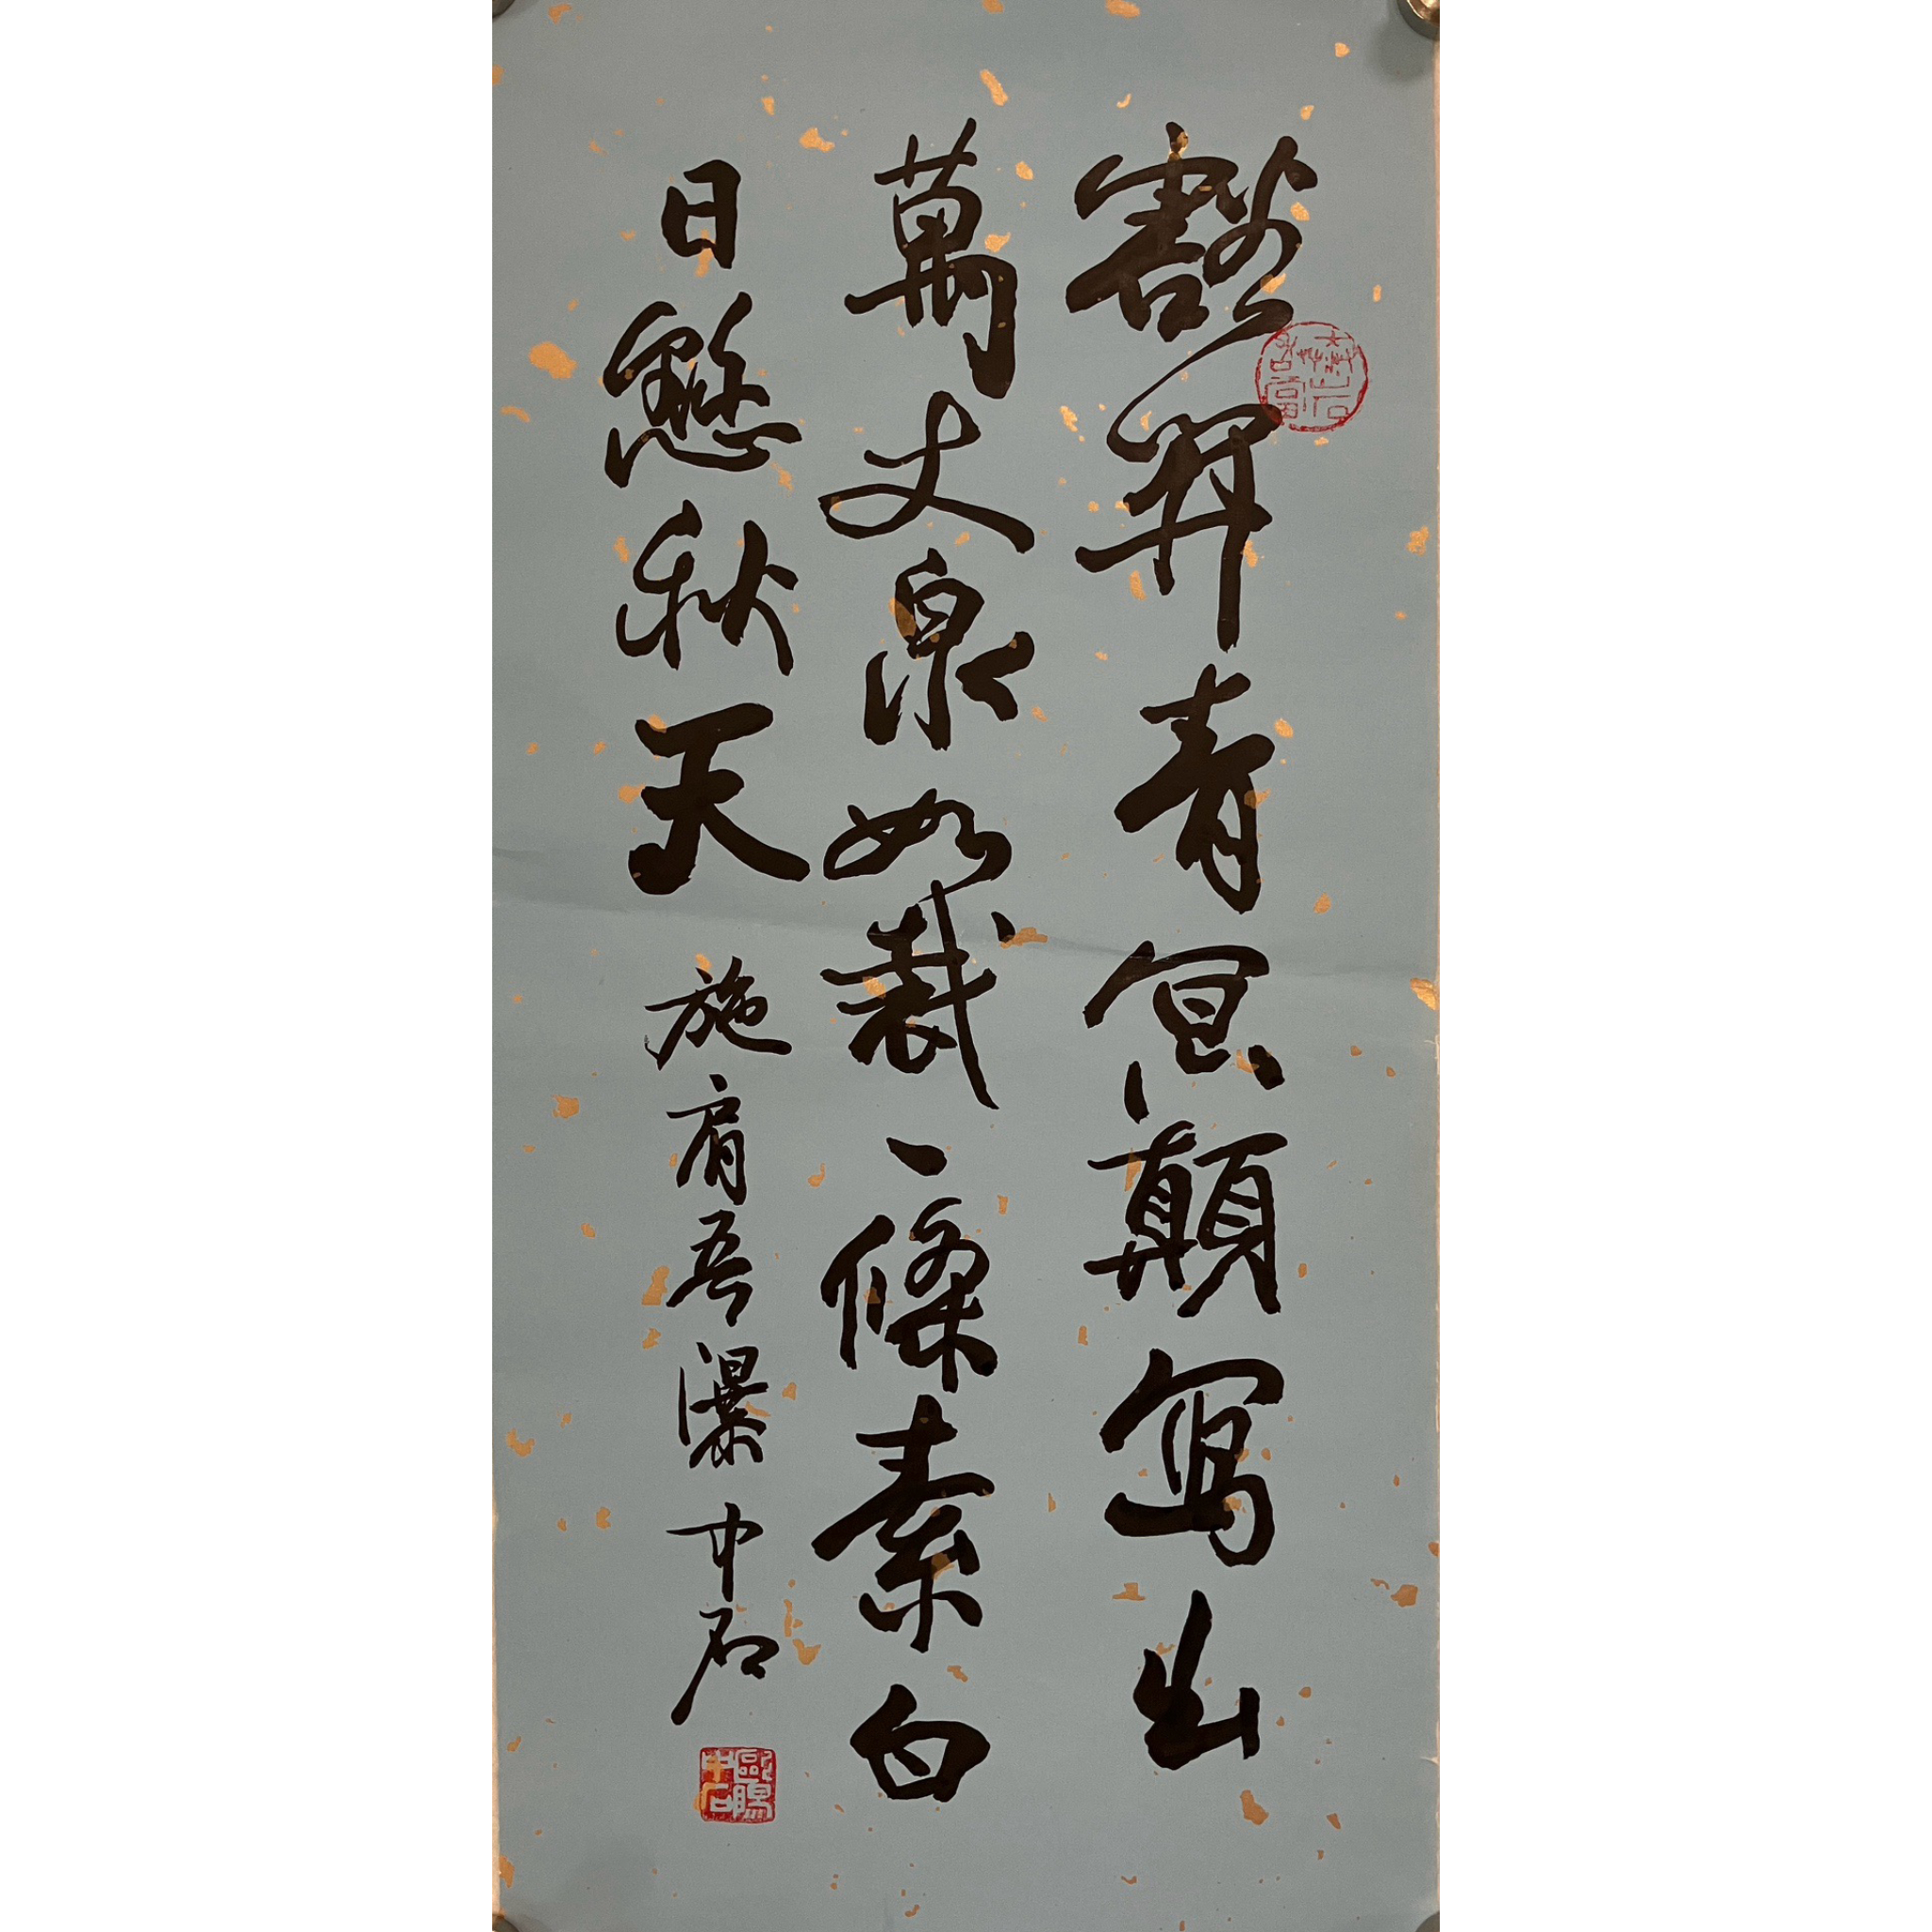 豁開青冥顛寫出
萬丈泉如裁一條素白
日懸秋天 施肩吾瀑 中石
歐陽中石